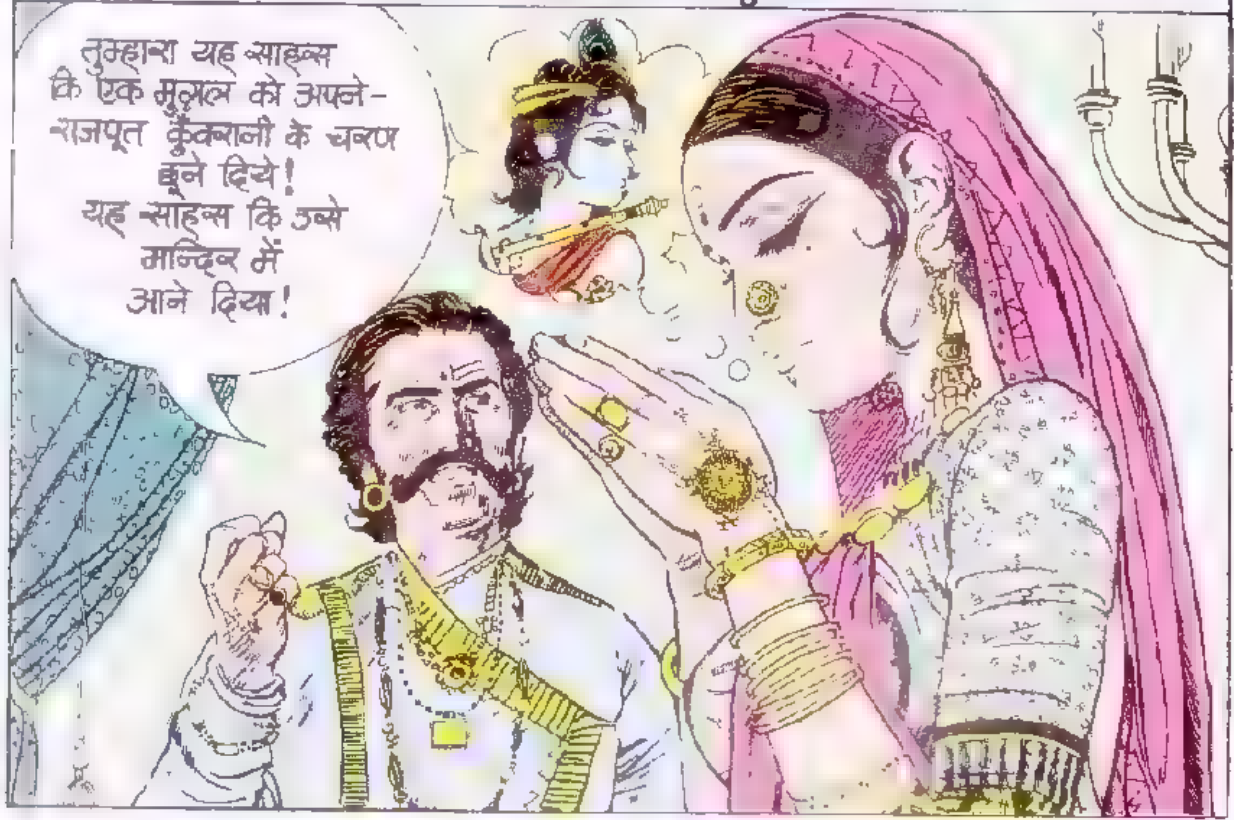 तुम्हारा यह साहस
कि एक मुग़ल को अपने-
राजपूत कुँवरानी के चरण
छूने दिये!
यह साहस कि उसे
मन्दिर में
आने दिया!